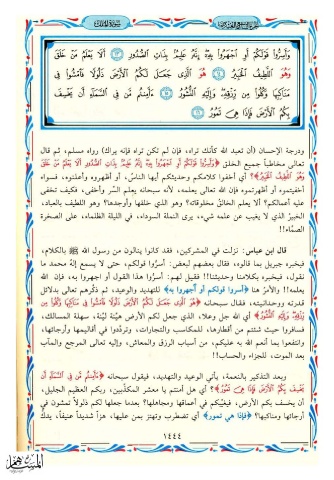 وَأَسِرُّوا قَوْلَكُمْ أَوِ اجْهَرُوا بِهِ إِنَّهُ عَلِيمٌ بِذَاتِ الصُّدُورِ ١٣ أَلَا يَعْلَمُ مَنْ خَلَقَ
وَهُوَ اللَّطِيفُ الْخَبِيرُ ١٤ هُوَ الَّذِي جَعَلَ لَكُمُ الْأَرْضَ ذَلُولًا فَامْشُوا فِي
مَنَاكِبِهَا وَكُلُوا مِنْ رِزْقِهِ وَإِلَيْهِ النُّشُورُ ١٥ ءَأَمِنْتُمْ مَنْ فِي السَّمَاءِ أَنْ يَخْسِفَ
بِكُمُ الْأَرْضَ فَإِذَا هِيَ تَمُورُ ١٦
ودرجة الإحسان (أن تعبد الله كأنك تراه، فإن لم تكن تراه فإنه يراك) رواه مسلم، ثم قال
تعالى مخاطباً جميع الخلق ﴿وَأَسِرُّوا قَوْلَكُمْ أَوِ اجْهَرُوا بِهِ إِنَّهُ عَلِيمٌ بِذَاتِ الصُّدُورِ أَلَا يَعْلَمُ مَنْ خَلَقَ
وَهُوَ اللَّطِيفُ الْخَبِيرُ﴾؟ أي أخفوا كلامكم وحديثكم أيها الناسُ، أو أظهروه وأعلنوه، فسواء
أخفيتموه أو أظهرتموه فإن الله تعالى يعلمه، لأنه سبحانه يعلم السِّر وأخفى، فكيف تخفى
عليه أعمالكم؟ ألا يعلم الخالقُ مخلوقاته؟ وهو الذي خلقها وأوجدها؟ وهو اللطيف بالعباد،
الخبيرُ الذي لا يغيب عن علمه شيء، يرى النملة السوداء، في الليلة الظلماء، على الصخرة
الصمَّاء!!
قال ابن عباس: نزلت في المشركين، فقد كانوا ينالون من رسول الله ﷺ بالكلام،
فيخبره جبريل بما قالوه، فقال بعضهم لبعض: أسرُّوا قولكم، حتى لا يسمع إلهُ محمد ما
نقول، فيخبره بكلامنا وحديثنا!! فقيل لهم: أسرُّوا هذا القول أو اجهروا به، فإن الله
يعلمه!! والأمرُ هنا ﴿أسروا قولكم أو اجهروا به﴾ للتهديد والوعيد، ثم ذكَّرهم تعالى بدلائل
قدرته ووحدانيته، فقال سبحانه ﴿هُوَ الَّذِي جَعَلَ لَكُمُ الْأَرْضَ ذَلُولًا فَامْشُوا فِي مَنَاكِبِهَا وَكُلُوا مِنْ
رِزْقِهِ وَإِلَيْهِ النُّشُورُ﴾ أي الله جل وعلا، الذي جعل لكم الأرض هيِّنة ليِّنة، سهلة المسالك،
فسافروا حيث شئتم من أقطارها، للمكاسب والتجارات، وتردَّدوا في أقاليمها وأرجائها،
وانتفعوا بما أنعم الله به عليكم، من أسباب الرزق والمعاش، وإليه تعالى المرجع والمآب
بعد الموت، للجزاء والحساب!!
وبعد التذكير بالنعمة، يأتي الوعيد والتهديد، فيقول سبحانه ﴿ءَأَمِنْتُمْ مَنْ فِي السَّمَاءِ أَنْ
يَخْسِفَ بِكُمُ الْأَرْضَ فَإِذَا هِيَ تَمُورُ﴾؟ أي هل أمنتم يا معشر المكذّبين، ربكم العظيم الجليل،
أن يخسف بكم الأرض، فيغيِّبكم في أعماقها ومجاهلها؟ بعدما جعلها لكم ذلولاً تمشون في
أرجائها ومناكبها؟ ﴿فإذا هي تمور﴾ أي تضطرب وتهتز بمن عليها، هزاً شديداً عنيفاً، يدكُّ
١٤٤٤